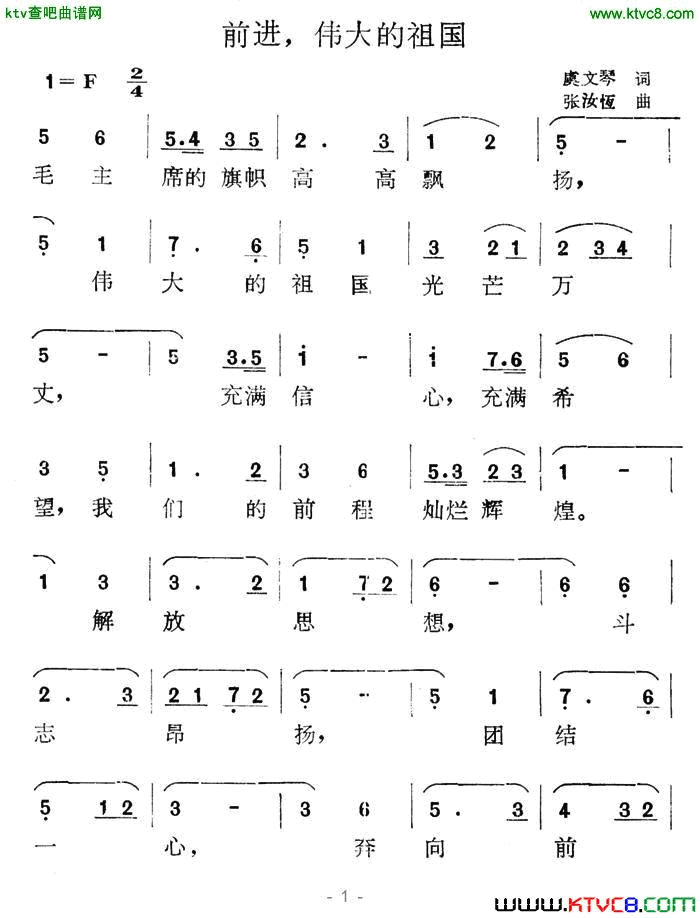 ktv查吧曲谱网
www.ktvc8.com
前进，伟大的祖国
1=F 2/4
虞文琴 词
张汝恆 曲
5 6 | 5.4 3 5 | 2. 3 | 1 2 | 5 - |
毛主席的旗帜高高飘扬，
5 1 | 7. 6 | 5 1 | 3 2 1 | 2 3 4 |
伟大的祖国光芒万
5 - | 5 3.5 | i - | i 7.6 | 5 6 |
丈，充满信心，充满希
3 5 | 1. 2 | 3 6 | 5.3 2 3 | 1 - |
望，我们的前程灿烂辉煌。
1 3 | 3. 2 | 1 7 2 | 6 - | 6 6 |
解放思想，斗
2. 3 | 2 1 7 2 | 5 - | 5 1 | 7. 6 |
志昂扬，团结
5 1 2 | 3 - | 3 6 | 5. 3 | 4 3 2 |
一心，奔向前
- 1 -
www.KTVC8.com